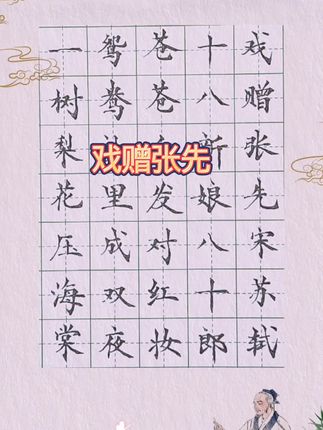 戏赠张先宋苏轼
十八新娘八十郎
苍苍发对红妆
鸳鸯里成双夜
一树梨花压海棠
戏赠张先